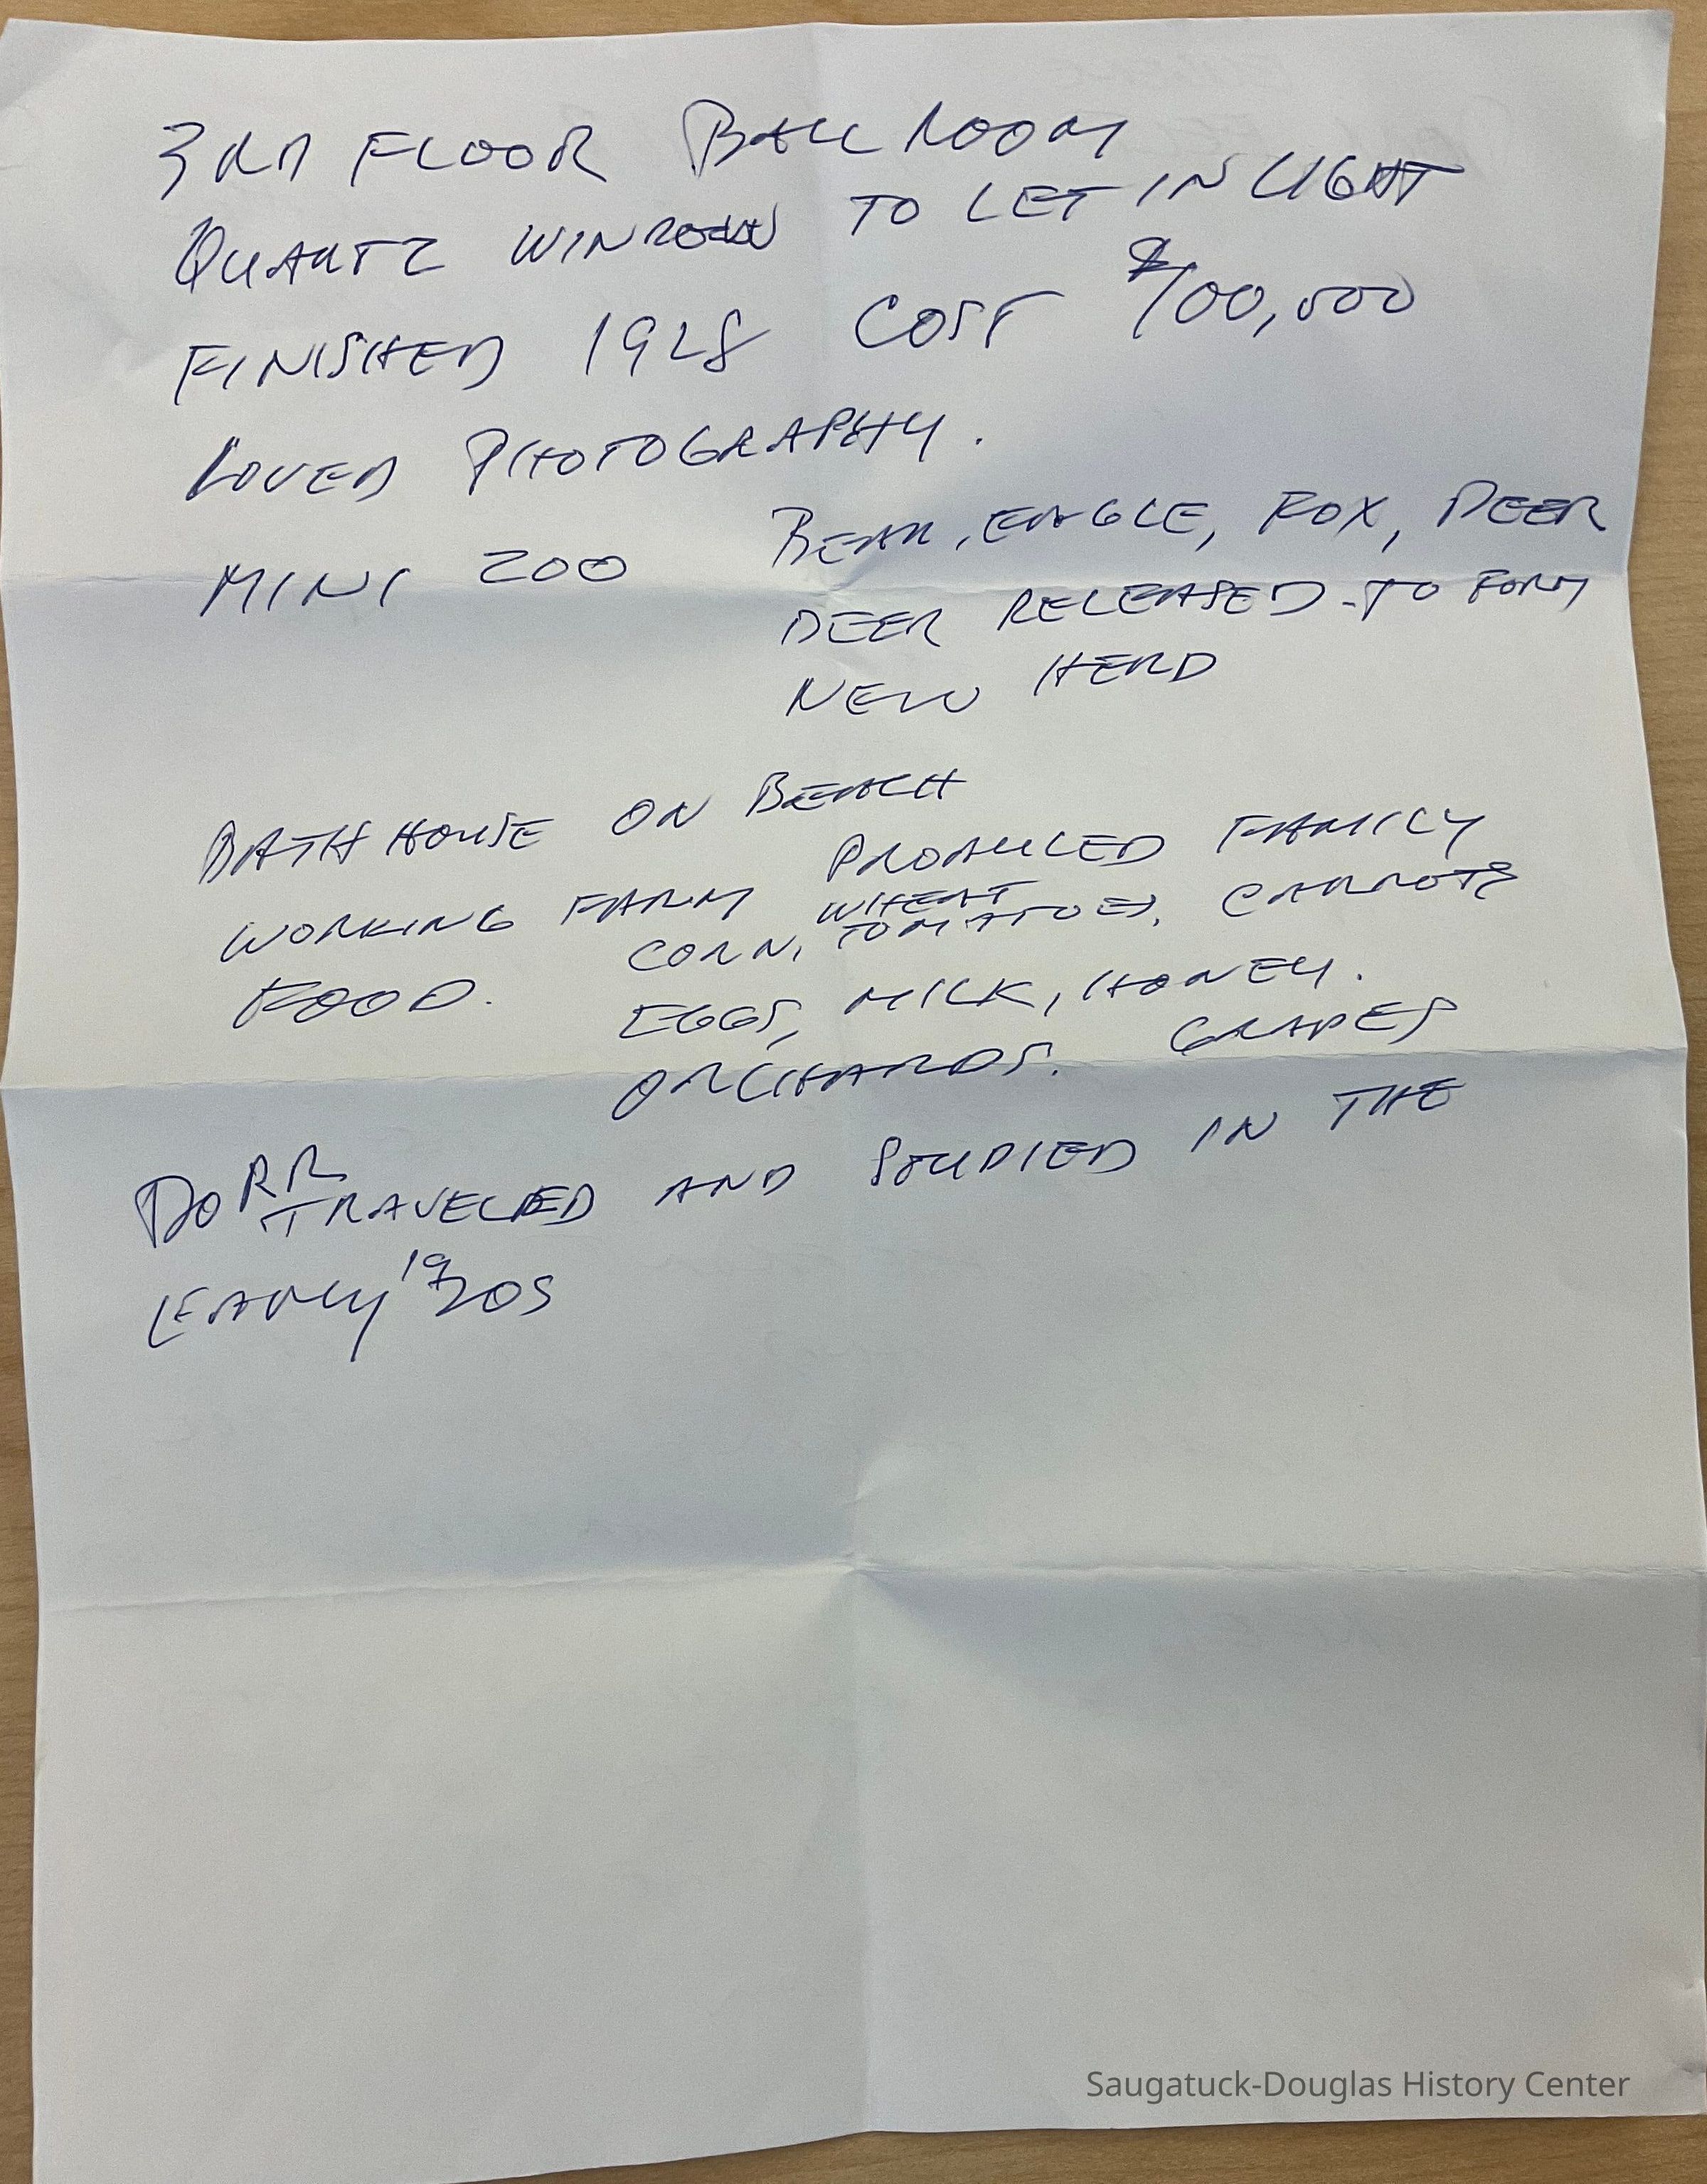 3RD FLOOR BALL ROOM
QUARTZ WINDOW TO LET IN LIGHT
FINISHED 1928 COST $100,000
LOVED PHOTOGRAPHY.
MINI ZOO BEAR, EAGLE, FOX, DEER
DEER RELEASED TO FORM
NEW HERD
BATH HOUSE ON BEACH
WORKING FARM PRODUCED FAMILY
FOOD. WHEAT
CORN, TOMATOES, CARROTS
EGGS, MILK, HONEY.
ORCHARDS. GRAPES
DORR TRAVELED AND STUDIED IN THE
EARLY 1920S
Saugatuck-Douglas History Center